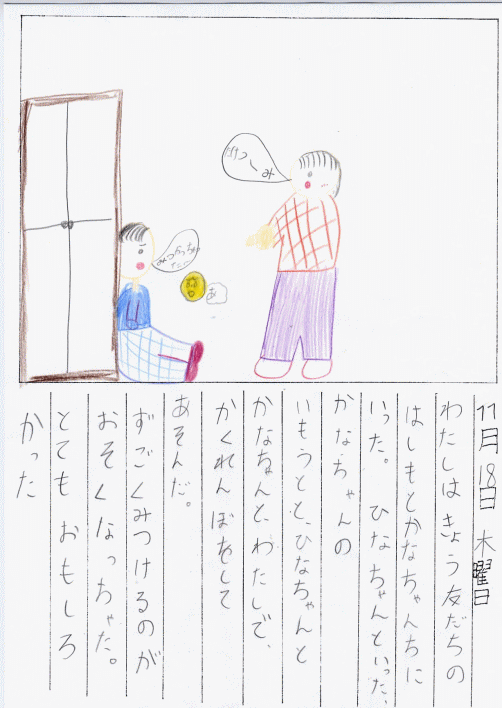 11月18日 木曜日
わたしは きょう 友だちの
はしもとかなちゃんちに
いった。 ひなちゃんといった、
かなちゃんの
いもうとと、ひなちゃんと
かなちゃんと、わたしで、
かくれんぼをして
あそんだ。
ずごくみつけるのが
おそくなっちゃた。
とても おもしろ
かった
あ